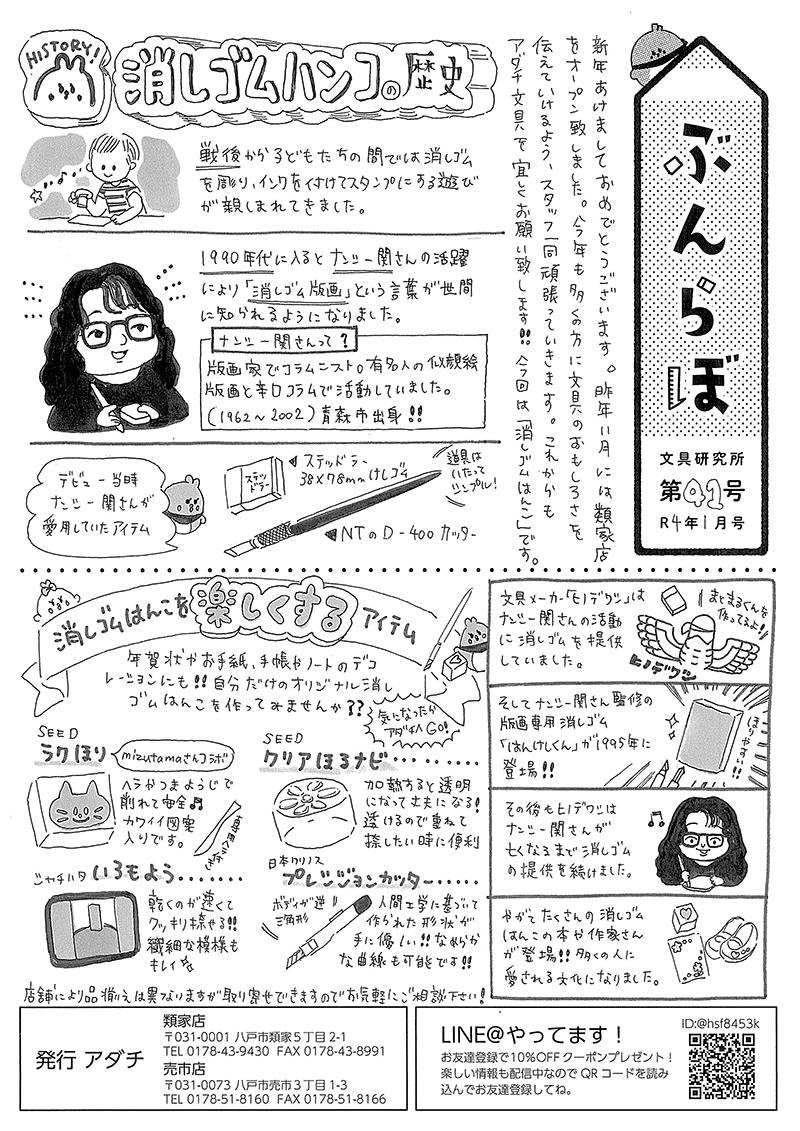 ぶんらぼ
文具研究所
第41号
R4年1月号
新年あけましておめでとうございます。昨年11月には類家店
をオープン致しました。今年も多くの方に文具のおもしろさを
伝えていけるよう、スタッフ一同頑張っていきます。これからも
アダチ文具を宜しくお願い致します!!今回は「消しゴムはんこ」です。
HISTORY!
消しゴムハンコの歴史
戦後から子どもたちの間では消しゴム
を彫り、インクを付けてスタンプにする遊び
が親しまれてきました。
1990年代に入るとナンシー関さんの活躍
により「消しゴム版画」という言葉が世間
に知られるようになりました。
ナンシー関さんって?
版画家でコラムニスト。有名人の似顔絵
版画と辛口コラムで活動していました。
(1962〜2002)青森市出身!!
デビュー当時
ナンシー関さんが
愛用していたアイテム
ステッドラー
◀ステッドラー
38×78mmけしゴム
道具は
いたって
シンプル!
◀NTのD-400カッター
消しゴムはんこを楽しくするアイテム
年賀状やお手紙、手帳やノートのデコ
レーションにも!!自分だけのオリジナル消し
ゴムはんこを作ってみませんか??
気になったら
アダチへGO!
SEED
ラクほり
mizutamaさんコラボ
ヘラやつまようじで
削れて安全♫
カワイイ図案
入りです。
SEED
クリアほるナビ
加熱すると透明
になって丈夫になる!
透けるので重ねて
捺したい時に便利
シャチハタ いろもよう
乾くのが速くて
クッキリ捺せる!!
繊細な模様も
キレイ☆
日本クリノス
プレシジョンカッター
ボディが逆
三角形
人間工学に基づいて
作られた形状が
手に優しい!!なめらか
な曲線も可能です!!
文具メーカー「ヒノデワシ」は
ナンシー関さんの活動
に消しゴムを提供
していました。
まとまるくんを
作ってるよ!!
ヒノデワシ
そしてナンシー関さん監修の
版画専用消しゴム
「はんけしくん」が1995年に
登場!!
ほりやすい!!
その後もヒノデワシは
ナンシー関さんが
亡くなるまで消しゴム
の提供を続けました。
やがてたくさんの消しゴム
はんこの本や作家さん
が登場!!多くの人に
愛される文化になりました。
店舗により品揃えは異なりますが取り寄せできますのでお気軽にご相談下さい!
発行 アダチ
類家店
〒031-0001 八戸市類家5丁目2-1
TEL 0178-43-9430 FAX 0178-43-8991
売市店
〒031-0073 八戸市売市3丁目1-3
TEL 0178-51-8160 FAX 0178-51-8166
LINE@やってます!
ID:@hsf8453k
お友達登録で10%OFFクーポンプレゼント!
楽しい情報も配信中なのでQRコードを読み
込んでお友達登録してね。